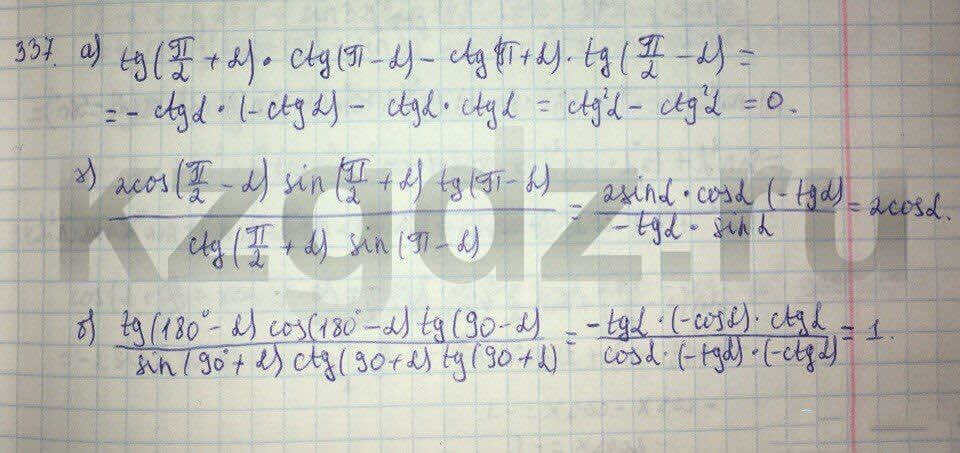 337. а) tg(π/2 + α) · ctg(π - α) - ctg(π + α) · tg(π/2 - α) =
= - ctgα · (- ctgα) - ctgα · ctgα = ctg²α - ctg²α = 0.
г) 2cos(π/2 - α) sin(π/2 + α) tg(π - α) / ctg(π/2 + α) sin(π - α) = 2sinα · cosα (-tgα) / -tgα · sinα = 2cosα.
б) tg(180° - α) cos(180° - α) tg(90 - α) / sin(90° + α) ctg(90 + α) tg(90 + α) = -tgα · (-cosα) · ctgα / cosα · (-tgα) · (-ctgα) = 1.
kzgdz.ru